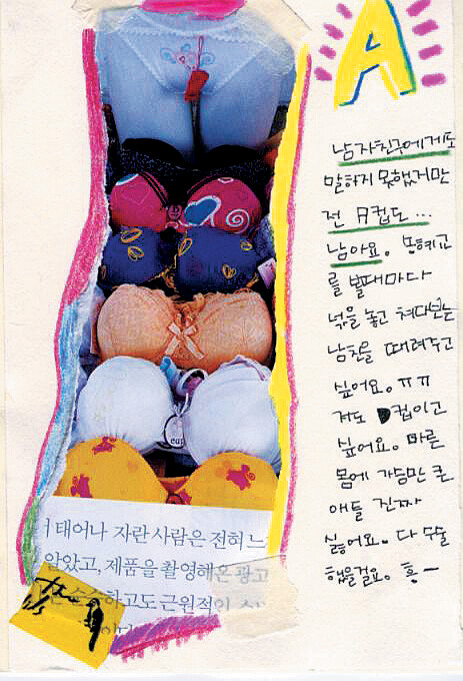 A
남자친구에게도
말하지 못했지만
전 A컵도...
남아요. 송혜교
를 볼때마다
넋을 놓고 쳐다보는
남친을 때려주고
싶어요. ㅠㅠ
저도 D컵이고
싶어요. 마른
몸에 가슴만 큰
애들 진짜
싫어요. 다 수술
했을걸요. 흥-
cup
태어나 자란 사람은 전혀 느
알았고, 제품을 촬영해온 광고
순수하고도 근원적인